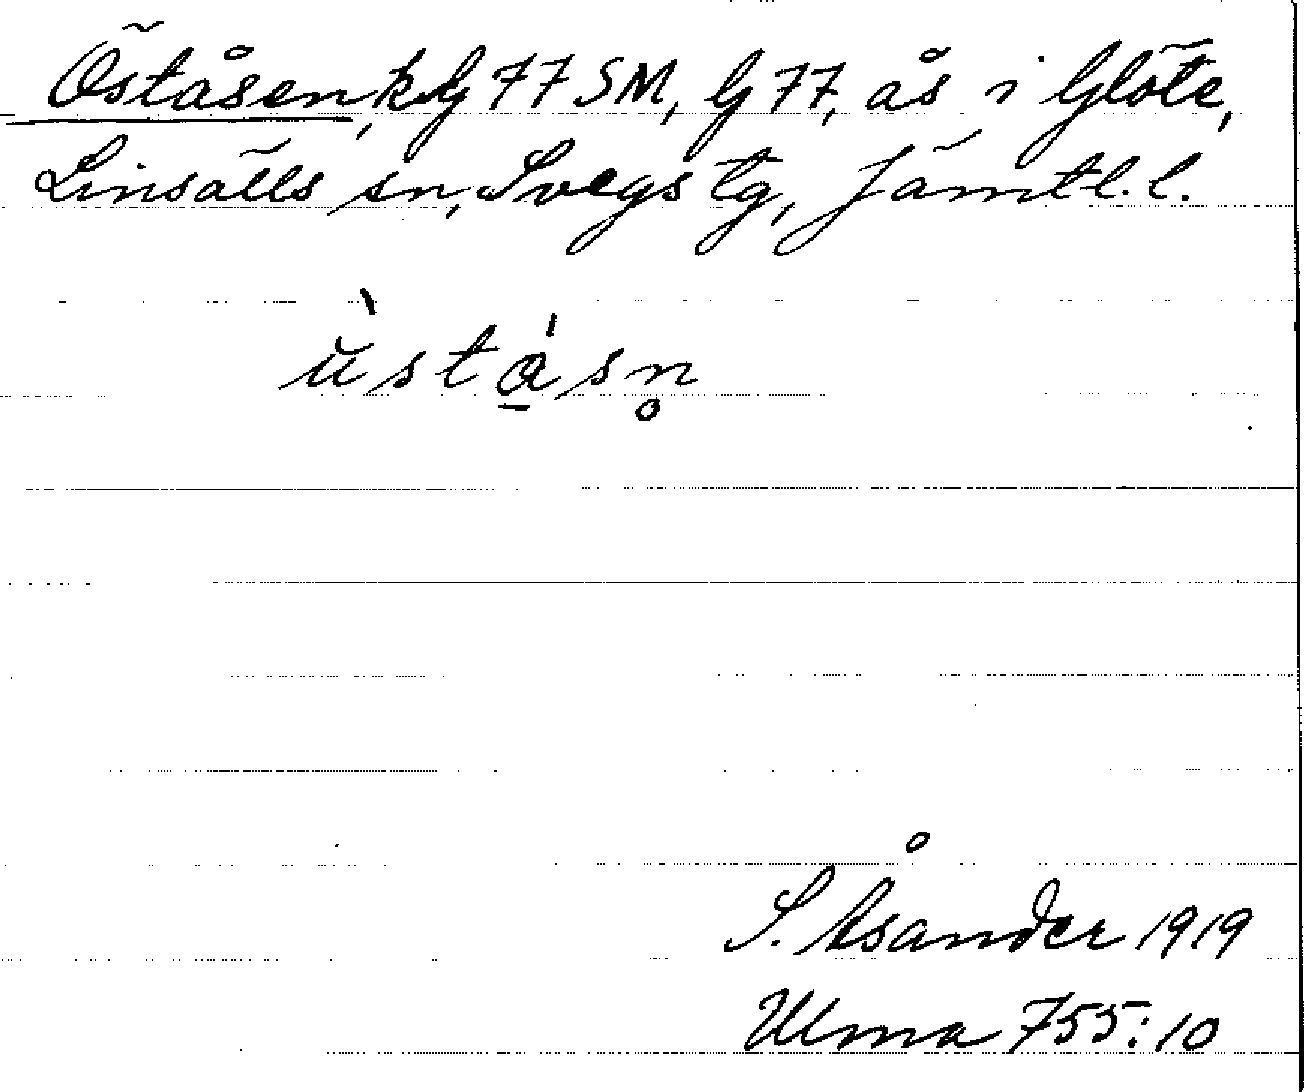 Öståsen, kg 77 SM, G 77, ås i Glöte,
Linsälls sn, Svegs tg, Jämtl. l.
ùstásn̥
S. Åsander 1919
Ulma 755:10